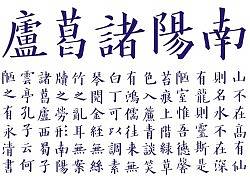 南陽諸葛盧
山不在高有仙
則名水不在深
有龍則靈斯是
陋室惟吾德馨
苔痕上階綠草
色入簾青談笑
有鴻儒往來無
白丁可以調素
琴閱金經無絲
竹之亂耳無案
牘之勞形南陽
諸葛廬西蜀子
雲亭孔子云何
陋之有永清書